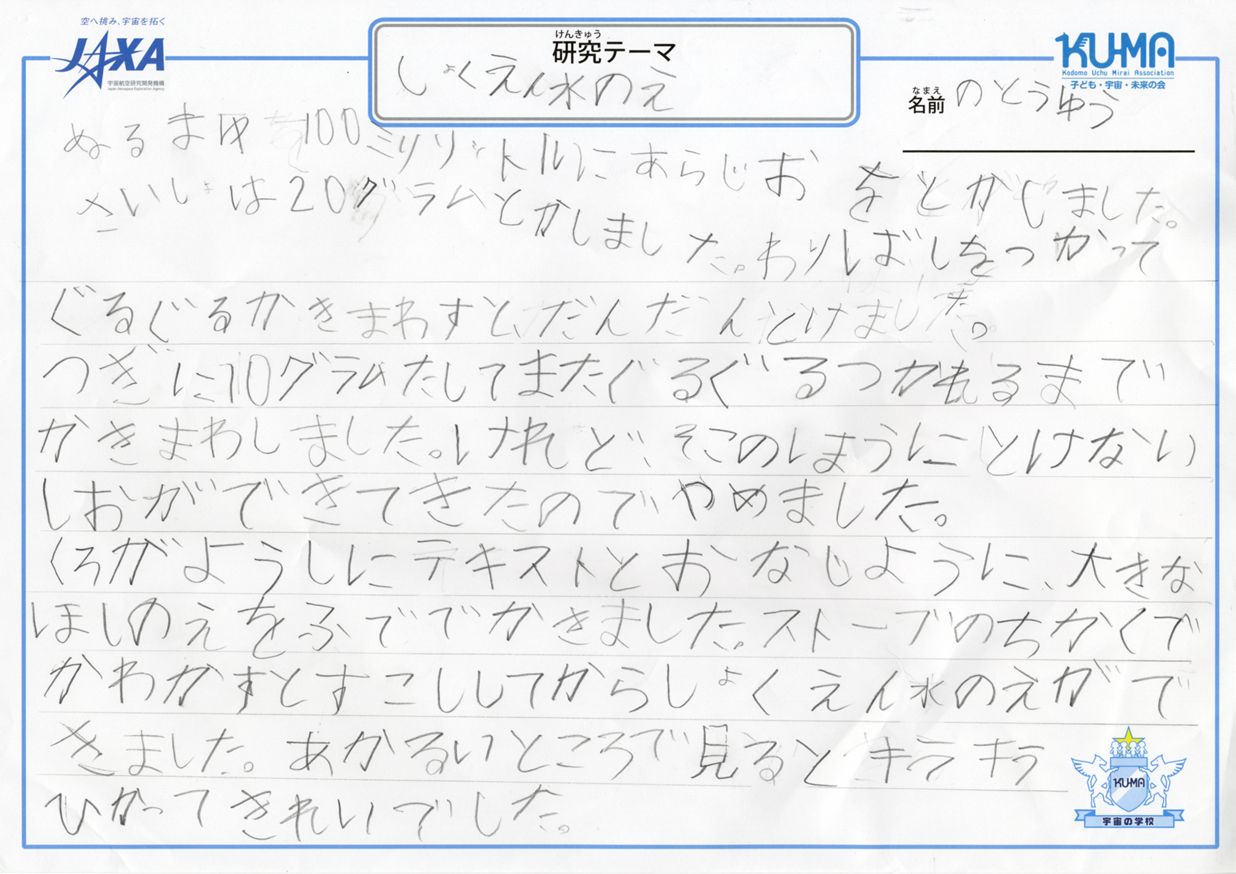 空へ挑み、宇宙を拓く
JAXA
宇宙航空研究開発機構
Japan Aerospace Exploration Agency
けんきゅう
研究テーマ
しょくえん水のえ
KU-MA
Kodomo Uchu Mirai Association
子ども・宇宙・未来の会
なまえ
名前 のとうゆう
ぬるまゆを100ミリリットルにあらじおをとかしました。
さいしょは20グラムとかしました。わりばしをつかって
ぐるぐるかきまわすと、だんだんとけました。
つぎに10グラムたしてまたぐるぐるつかれるまで
かきまわしました。けれど、そこのほうにとけない
しおがでてきたのでやめました。
くろがようしにテキストとおなじように、大きな
ほしのえをふででかきました。ストーブのちかくで
かわかすとすこししてからしょくえん水のえがで
きました。あかるいところで見るとキラキラ
ひかってきれいでした。
KU-MA
宇宙の学校